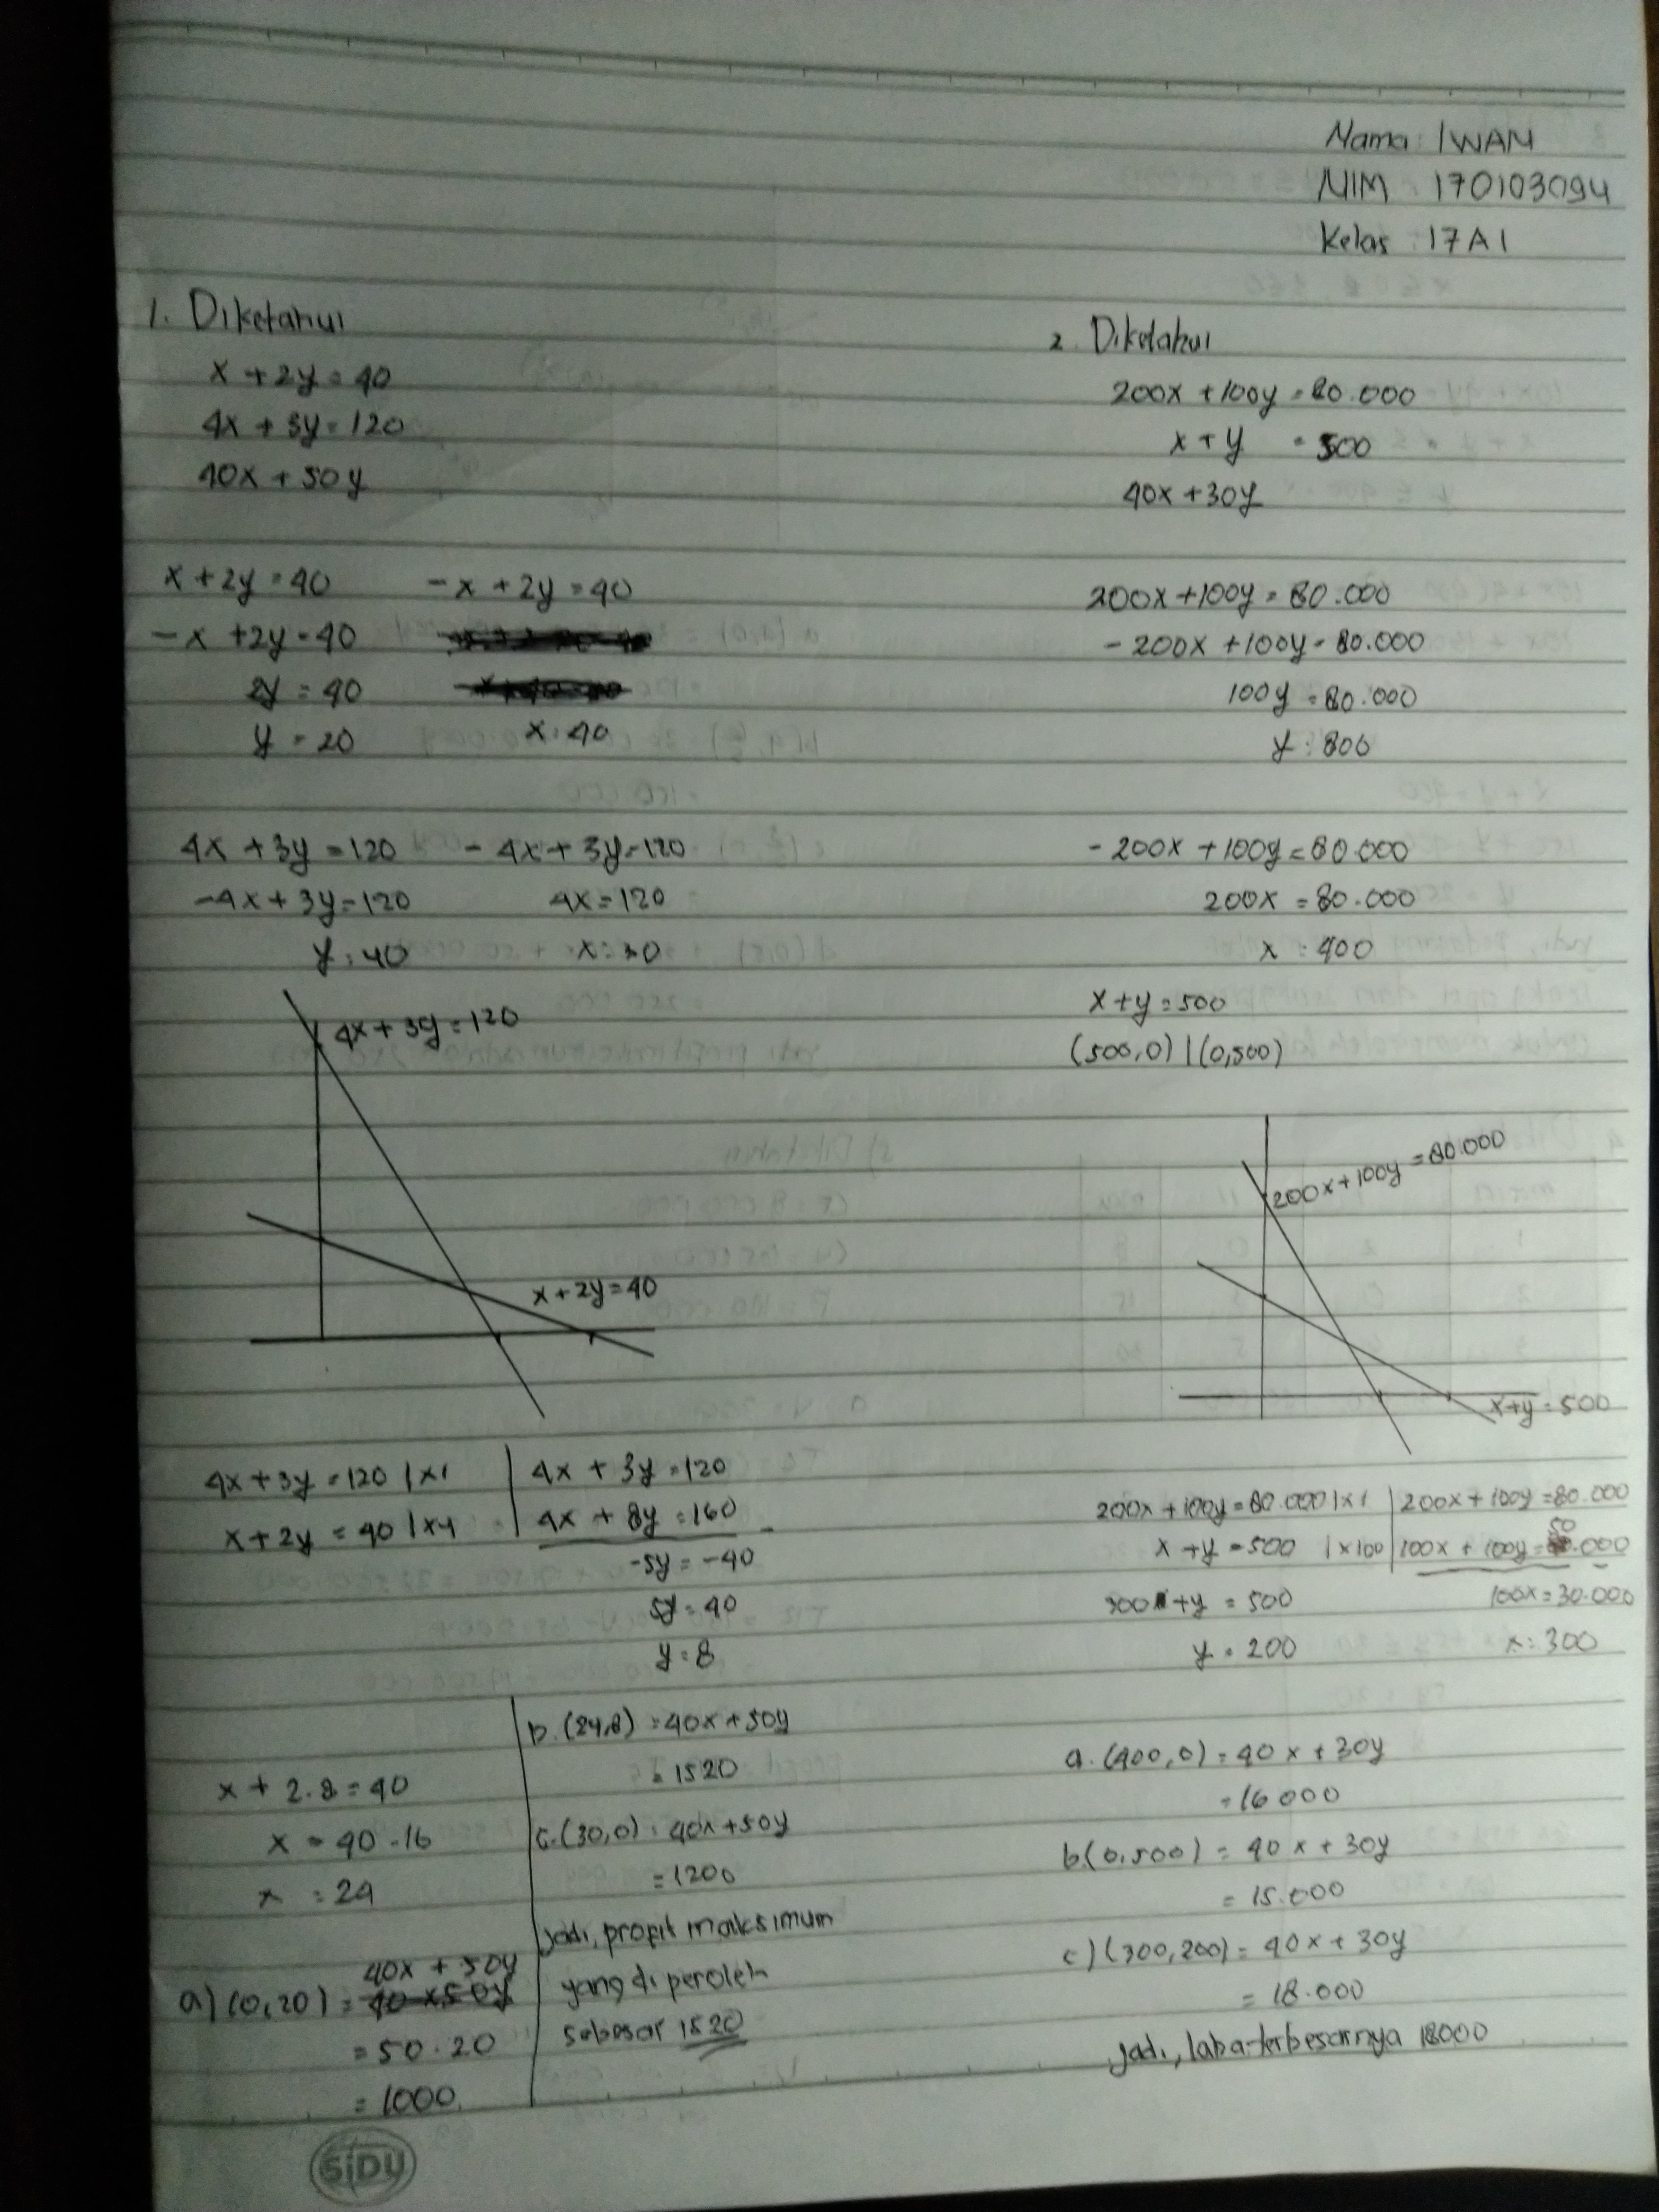 Nama : IWAN
NIM : 170103094
Kelas : 17A1
1. Diketahui
x + 2y = 40
4x + 3y = 120
40x + 50y
x + 2y = 40
-x + 2y = 40
2y = 40
y = 20
-x + 2y = 40
x = 40
4x + 3y = 120
-4x + 3y = 120
y = 40
- 4x + 3y = 120
4x = 120
x = 30
4x + 3y = 120
x + 2y = 40
4x + 3y = 120 | x1
x + 2y = 40 | x4
4x + 3y = 120
4x + 8y = 160 -
-5y = -40
5y = 40
y = 8
x + 2.8 = 40
x = 40 - 16
x = 24
a) (0,20) = 40x + 50y
= 50 . 20
= 1000
b. (24,8) = 40x + 50y
= 1520
c. (30,0) = 40x + 50y
= 1200
Jadi, profit maksimum
yang di peroleh
sebesar 1520
2. Diketahui
200x + 100y = 80.000
x + y = 500
40x + 30y
200x + 100y = 80.000
- 200x + 100y = 80.000
100y = 80.000
y = 800
- 200x + 100y = 80.000
200x = 80.000
x = 400
x + y = 500
(500,0) | (0,500)
200x + 100y = 80.000
x + y = 500
200x + 100y = 80.000 | x1 | 200x + 100y = 80.000
x + y = 500 | x100 | 100x + 100y = 50.000 -
100x = 30.000
x = 300
300 + y = 500
y = 200
a. (400,0) = 40x + 30y
= 16000
b. (0,500) = 40x + 30y
= 15.000
c.) (300,200) = 40x + 30y
= 18.000
Jadi, laba terbesarnya 18000
SiDU